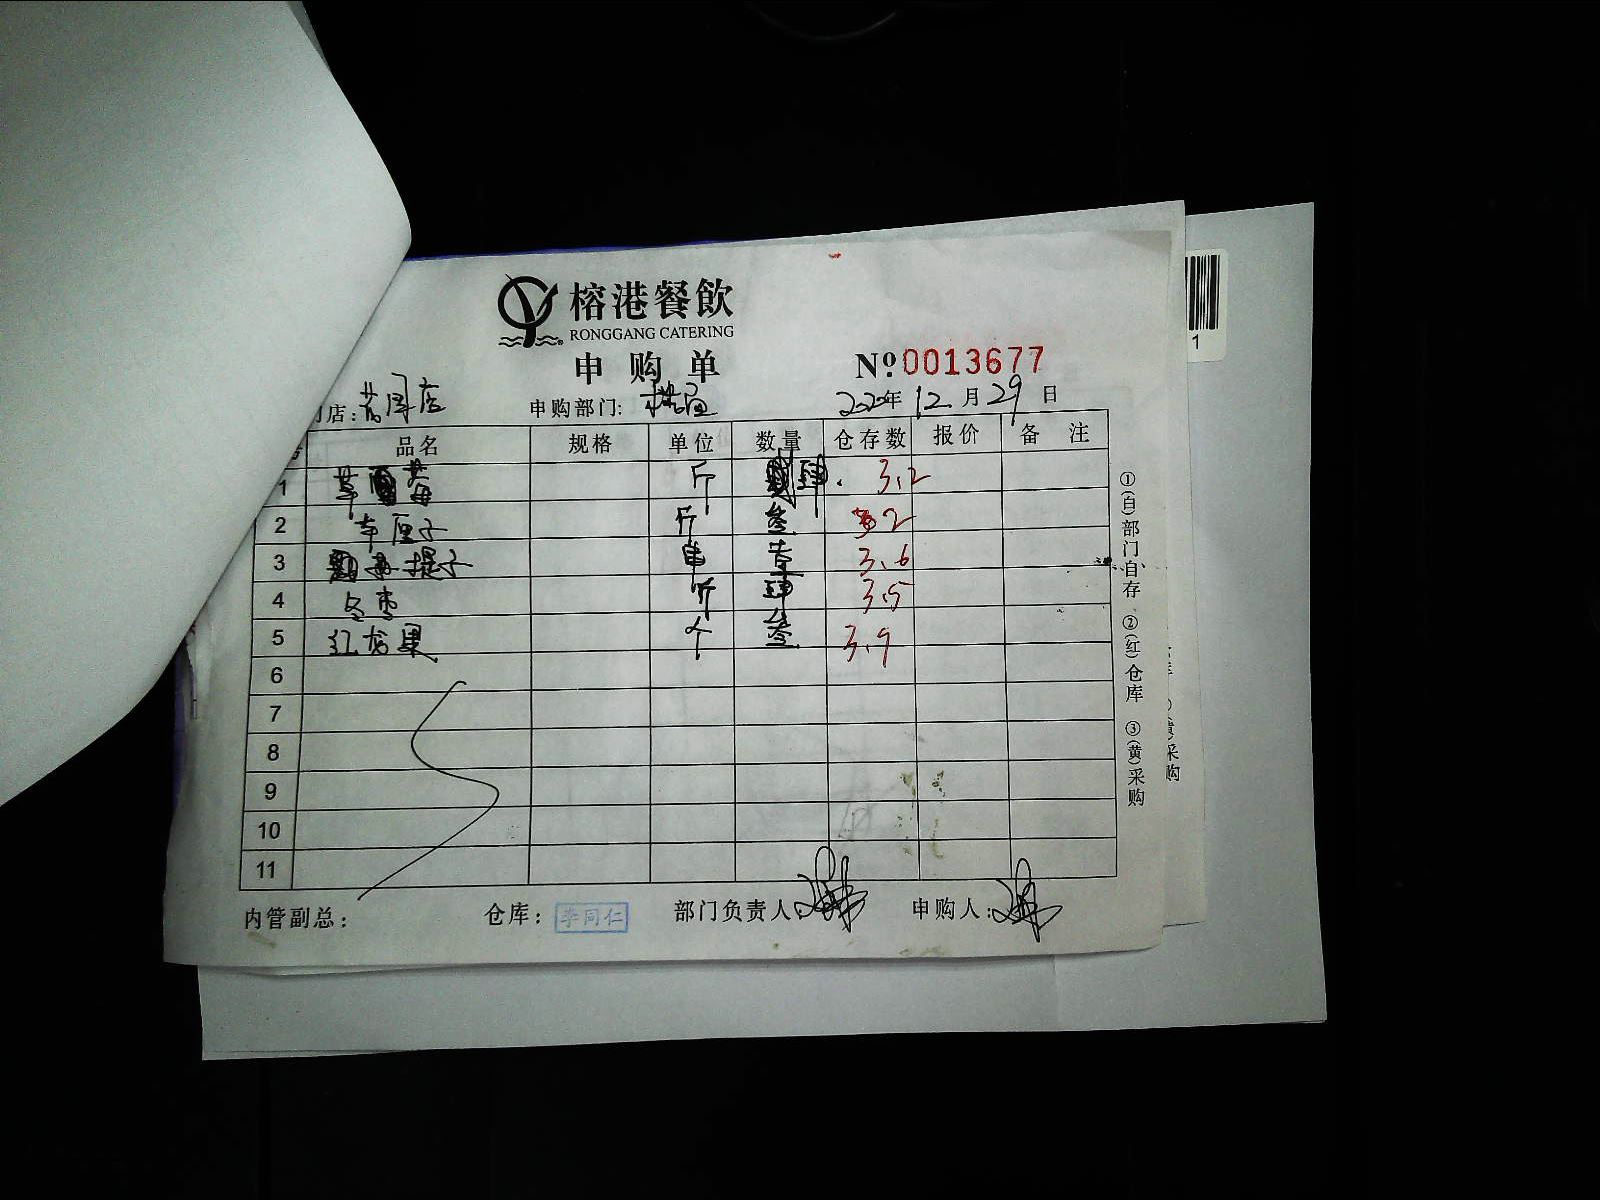 榕港餐飲
RONGGANG CATERING
申购单
Nº 0013677
店: 店 申购部门: 2020年 12月 29日
品名 规格 单位 数量 仓存数 报价 备注
1 草莓 斤 肆 3.2
2 车厘子 斤 叁 2
3 提子 壹 3.6
4 冬枣 斤 肆 3.5
5 红龙果 个 叁 3.9
6
7
8
9
10
11
内管副总: 仓库: 李同仁 部门负责人: 申购人:
①(白)部门自存 ②(红)仓库 ③(黄)采购
采购
1